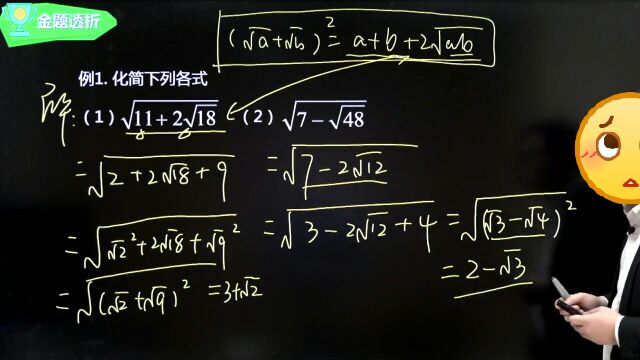 金题透析
(√a+√b)²=a+b+2√ab
例1. 化简下列各式
解:(1)√(11+2√18) (2)√(7-√48)
=√(2+2√18+9) =√(7-2√12)
=√(√2²+2√18+√9²) =√(3-2√12+4) =√((√3-√4)²)
=√((√2+√9)²) =3+√2 =2-√3